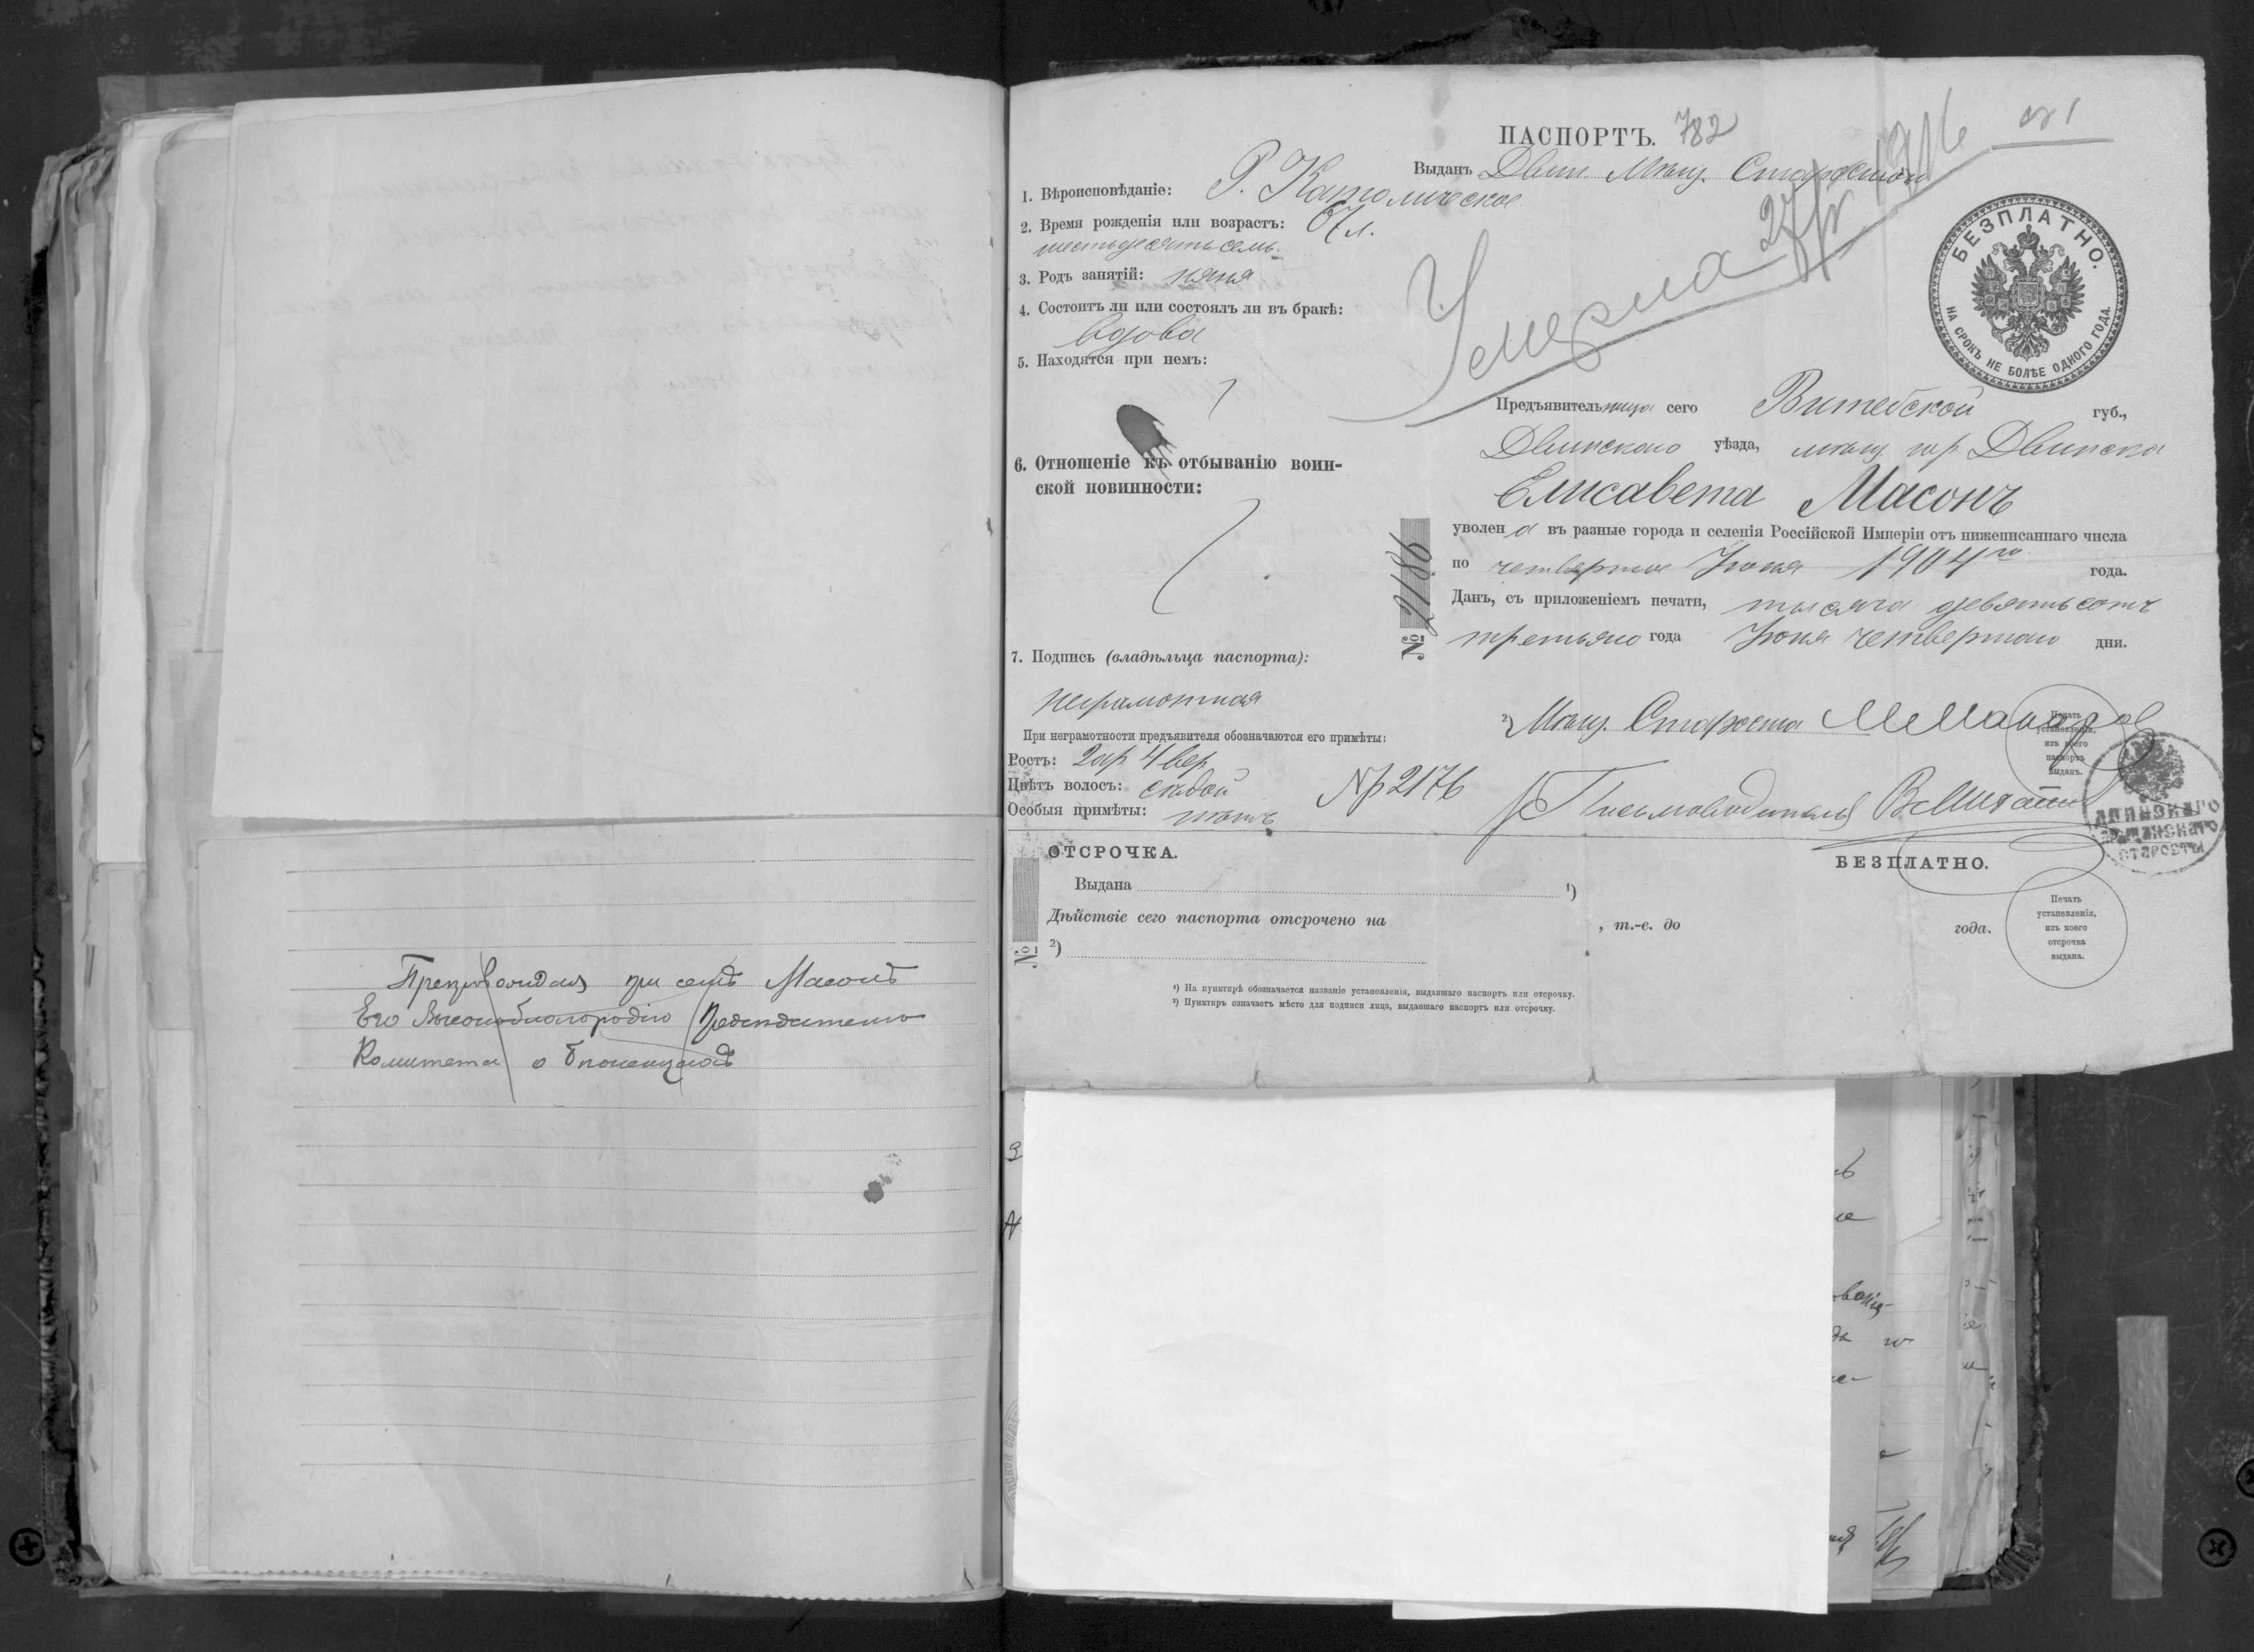 Препровождая при семъ Масонъ
Его Высокоблагородію Председателю
Комитета о
ПАСПОРТЪ. 782
№ 1
Выданъ Двин. Мѣщ. Старостою
1. Вѣроисповѣданіе: Р. Католическое
2. Время рожденія или возрастъ: 67 л.
шестьдесятъ семь
3. Родъ занятій: няня
4. Состоитъ ли или состоялъ ли въ бракѣ:
вдова
5. Находятся при немъ:
6. Отношеніе къ отбыванію воин-
ской повинности:
7. Подпись (владѣльца паспорта):
неграмотная
При неграмотности предъявителя обозначаются его примѣты:
Ростъ: 2 ар 4 вер
Цвѣтъ волосъ: сѣдой
Особыя примѣты: нѣтъ
Умерла 27/IV 1916
БЕЗПЛАТНО.
НА СРОКЪ НЕ БОЛѢЕ ОДНОГО ГОДА.
Предъявительница сего Витебской губ.,
Двинскаго уѣзда, мѣщ. гор Двинска
Елисавета Масонъ
уволена въ разные города и селенія Россійской Имперіи отъ нижеписаннаго числа
по четвертое Іюня 1904го года.
Данъ, съ приложеніемъ печати, тысяча девятьсотъ
третьяго года Іюня четвертаго дня.
№ 2186
2) Мѣщ. Староста
Печать
установленія,
изъ коего
паспортъ
выданъ.
Nр 2176
Письмоводитель
ДВИНСКАГО
МѢЩАНСКАГО
СТАРОСТЫ
ОТСРОЧКА.
БЕЗПЛАТНО.
Выдана 1)
Дѣйствіе сего паспорта отсрочено на , т.-е. до года.
№
2)
Печать
установленія,
изъ коего
отсрочка
выдана.
1) На пунктирѣ обозначается названіе установленія, выдавшаго паспортъ или отсрочку.
2) Пунктиръ означаетъ мѣсто для подписи лица, выдавшаго паспортъ или отсрочку.